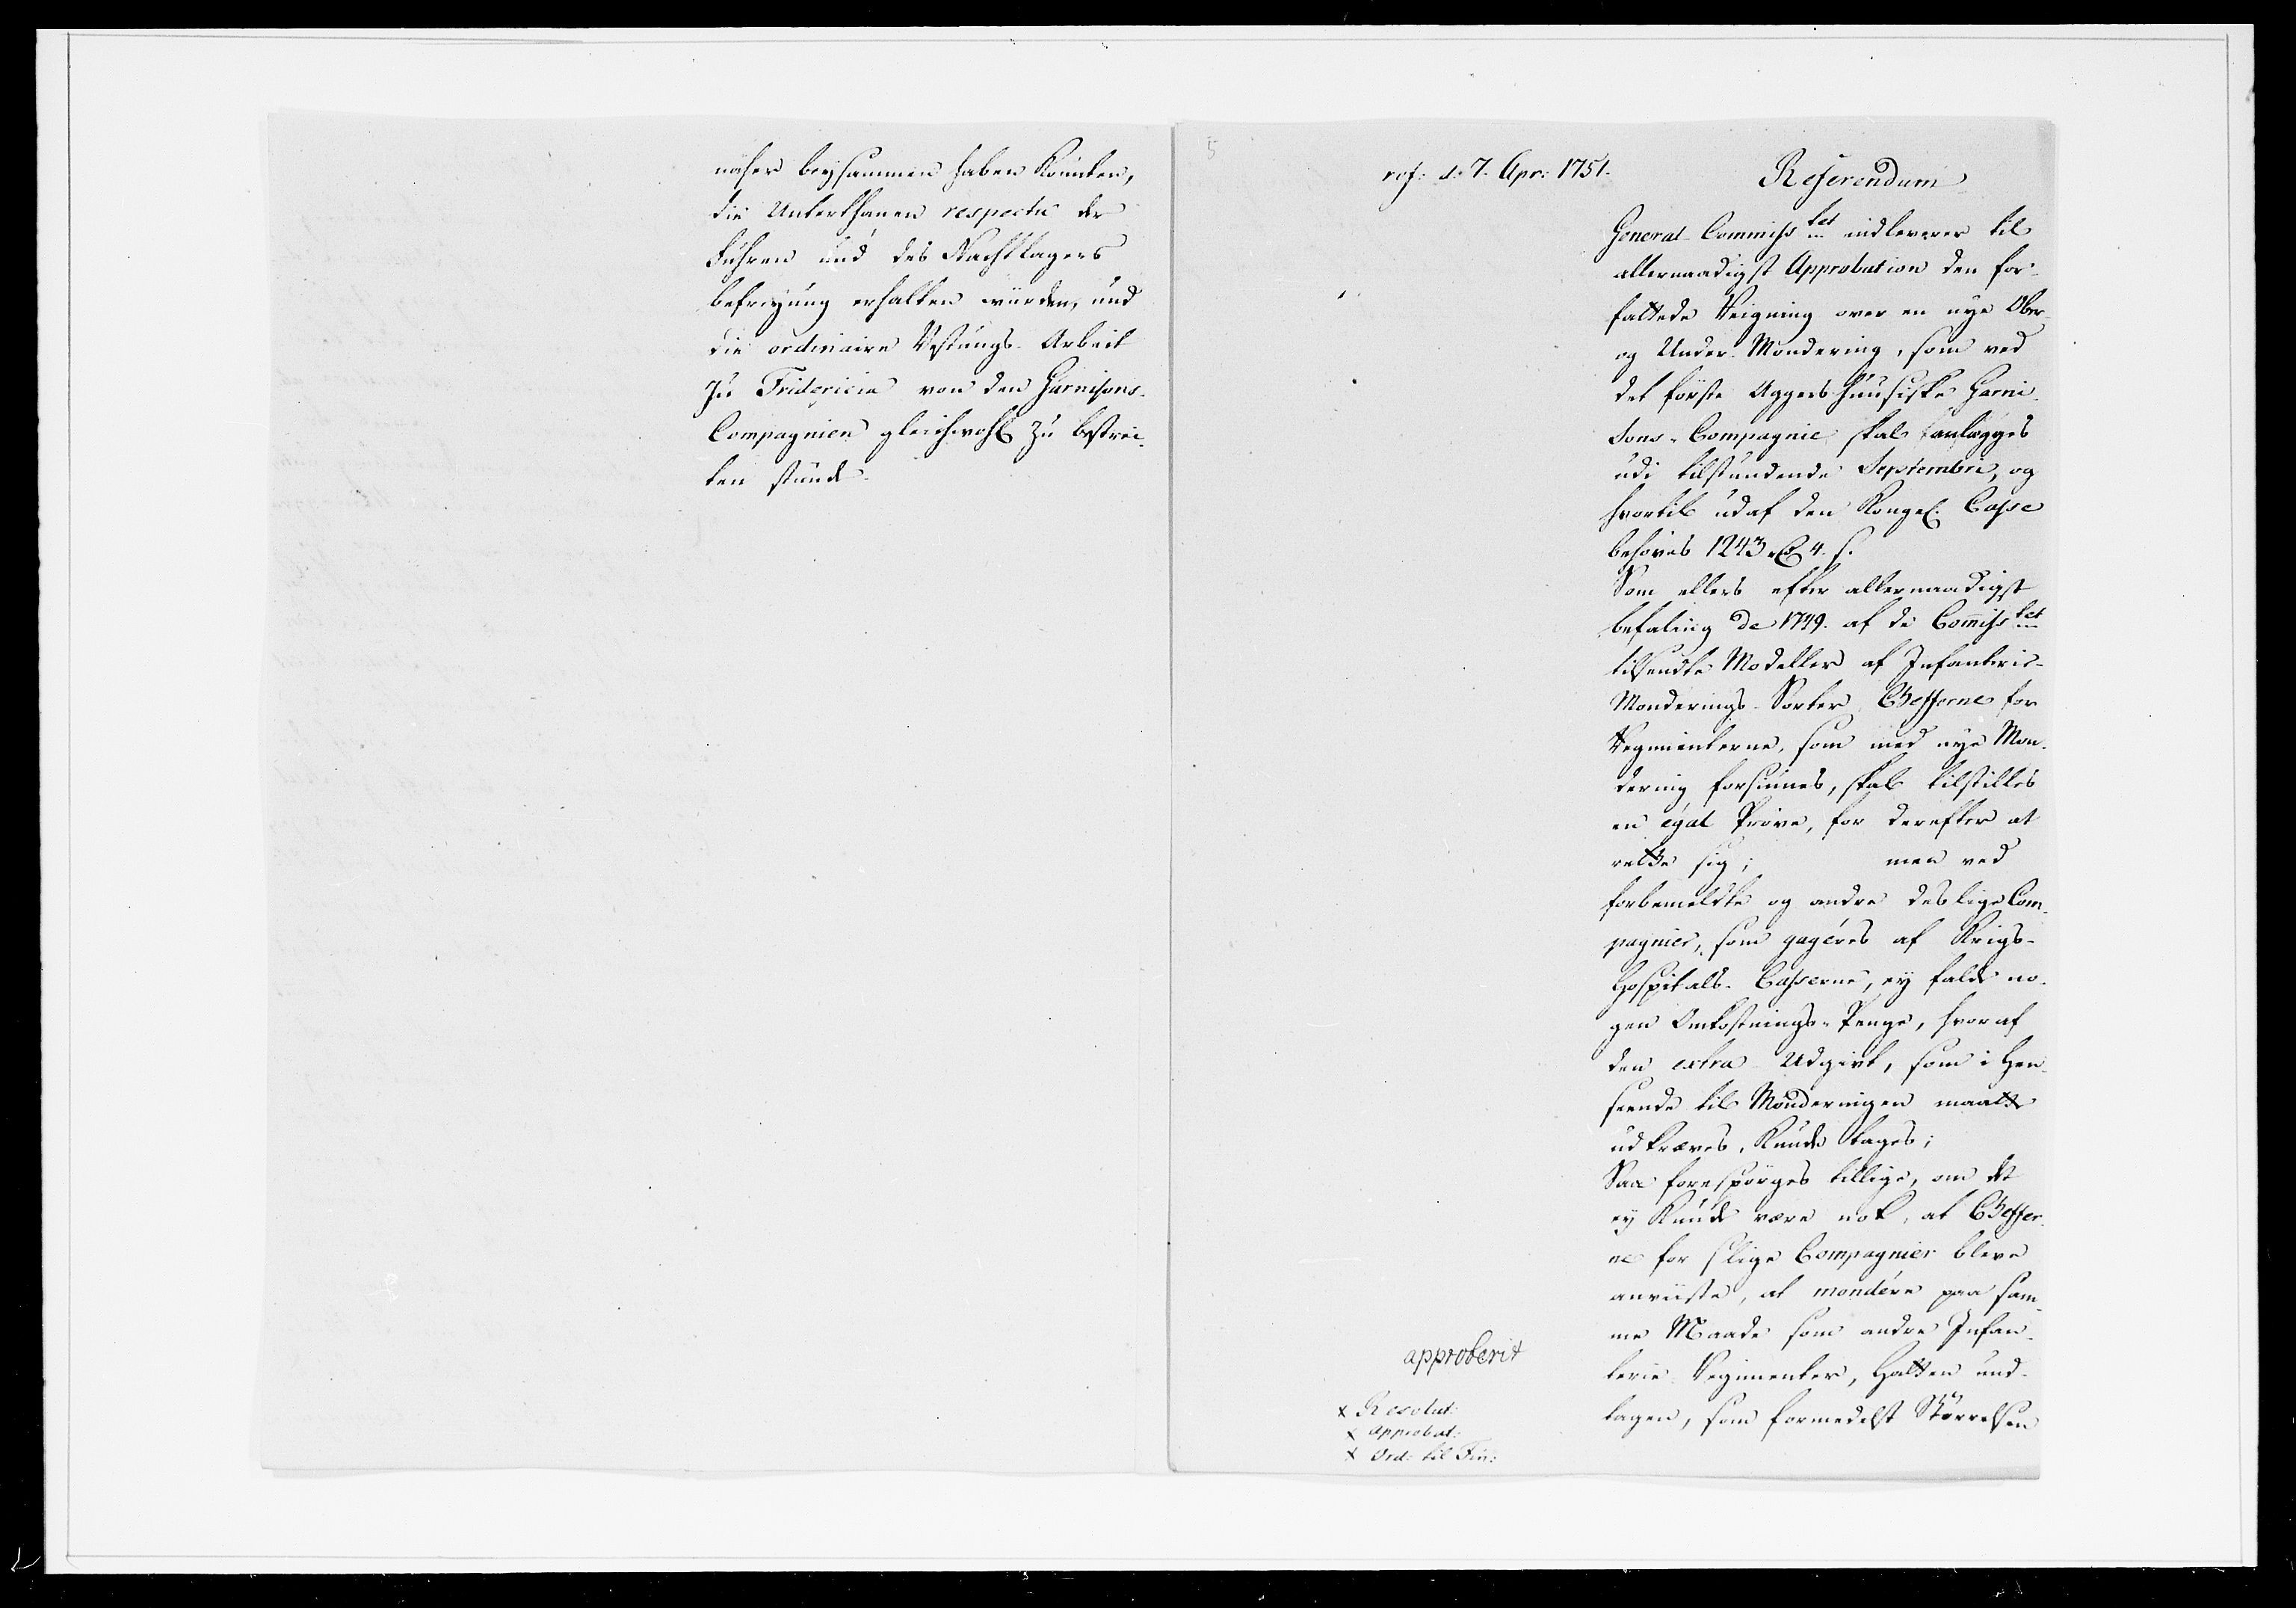 näher beysammen haben könten,
die Unterthanen respectu der
Fuhren und des Nachtlagers
befreyung erhalten würden, und
die ordinaire Vestungs-Arbeit
zu Fridericia von den Garnisons-
Compagnien gleichwohl zu bestrei-
ten stünde.
5
ref: d. 7. Apr: 1751.
Referendum
General-Commiss tet indleverer til
allernaadigst Approbation den for-
fattede Reigning over en nye Ober-
og Under-Mondering, som ved
det förste Aggershuusiske Garni-
sons-Compagnie skal anlægges
udi tilstundende Septembri, og
hvortil udaf den Kongel. Casse
behöves 1243 Rd 4. s.
Som ellers efter allernaadigst
befaling de 1749. af de Com̄iss tet
tilsendte Modeller af Infanterie-
Monderings-Sorter Chefferne for
Regimenterne, som med nye Mon-
dering forsiunes, skal tilstilles
en egal Pröve, for derefter at
rette sig; men ved
forbemeldte og andre deslige Com-
pagnier, som gageres af Krigs-
Hospitals-Casserne, ey falde no-
gen Omkostnings-Penge, hvoraf
den extra Udgivt, som i Hen-
seende til Monderingen maatte
udkræves, kunde tages;
Saa forespörges tillige, om det
ey kunde være nok, at Cheffer-
ne for slige Compagnier bleve
anviiste, at mondere paa sam-
me Maade som andre Infan-
terie-Regimenter, Hatten und-
tagen, som formedelst Störrelsen
approberit
x Resolut:
x approbat:
x Ord: til Fin: